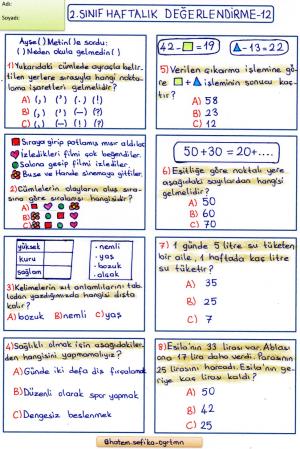 Adı:
Soyadı:
2.SINIF HAFTALIK DEĞERLENDİRME-12
Ayşe( ) Metin( )e sordu:
( ) Neden okula gelmedin( )
1) Yukarıdaki cümlede ayraçla belir-
tilen yerlere sırasıyla hangi nokta-
lama işaretleri gelmelidir?
A) (,) (') (.) (!)
B) (,) (') (-) (?)
C) (,) (-) (!) (?)
Sıraya girip patlamış mısır aldılar.
İzledikleri filmi çok beğendiler.
Salona geçip filmi izlediler.
Buse ve Hande sinemaya gittiler.
2) Cümlelerin oluş sıra-
sına göre sıralanışı hangisidir?
A)
B)
C)
yüksek
kuru
sağlam
• nemli
• yaş
• bozuk
• alçak
3) Kelimelerin zıt anlamlılarını tab-
lodan yazdığımızda hangisi dışta
kalır?
A) bozuk B) nemli C) yaş
4) Sağlıklı olmak için aşağıdakiler-
den hangisini yapmamalıyız?
A) Günde iki defa diş fırçalamak
B) Düzenli olarak spor yapmak
C) Dengesiz beslenmek
42- =19
-13=22
5) Verilen çıkarma işlemine gö-
re + işleminin sonucu kaç-
tır?
A) 58
B) 23
C) 12
50+30=20+....
6) Eşitliğe göre noktalı yere
aşağıdaki sayılardan hangisi
gelmelidir?
A) 50
B) 60
C) 70
7) 1 günde 5 litre su tüketen
bir aile, 1 haftada kaç litre
su tüketir?
A) 35
B) 25
C) 7
8) Esila'nın 33 lirası var. Ablası
ona 17 lira daha verdi. Parasının
25 lirasını harcadı. Esila'nın ge-
riye kaç lirası kaldı?
A) 50
B) 42
C) 25
@hatem.sefika-ogrtmn